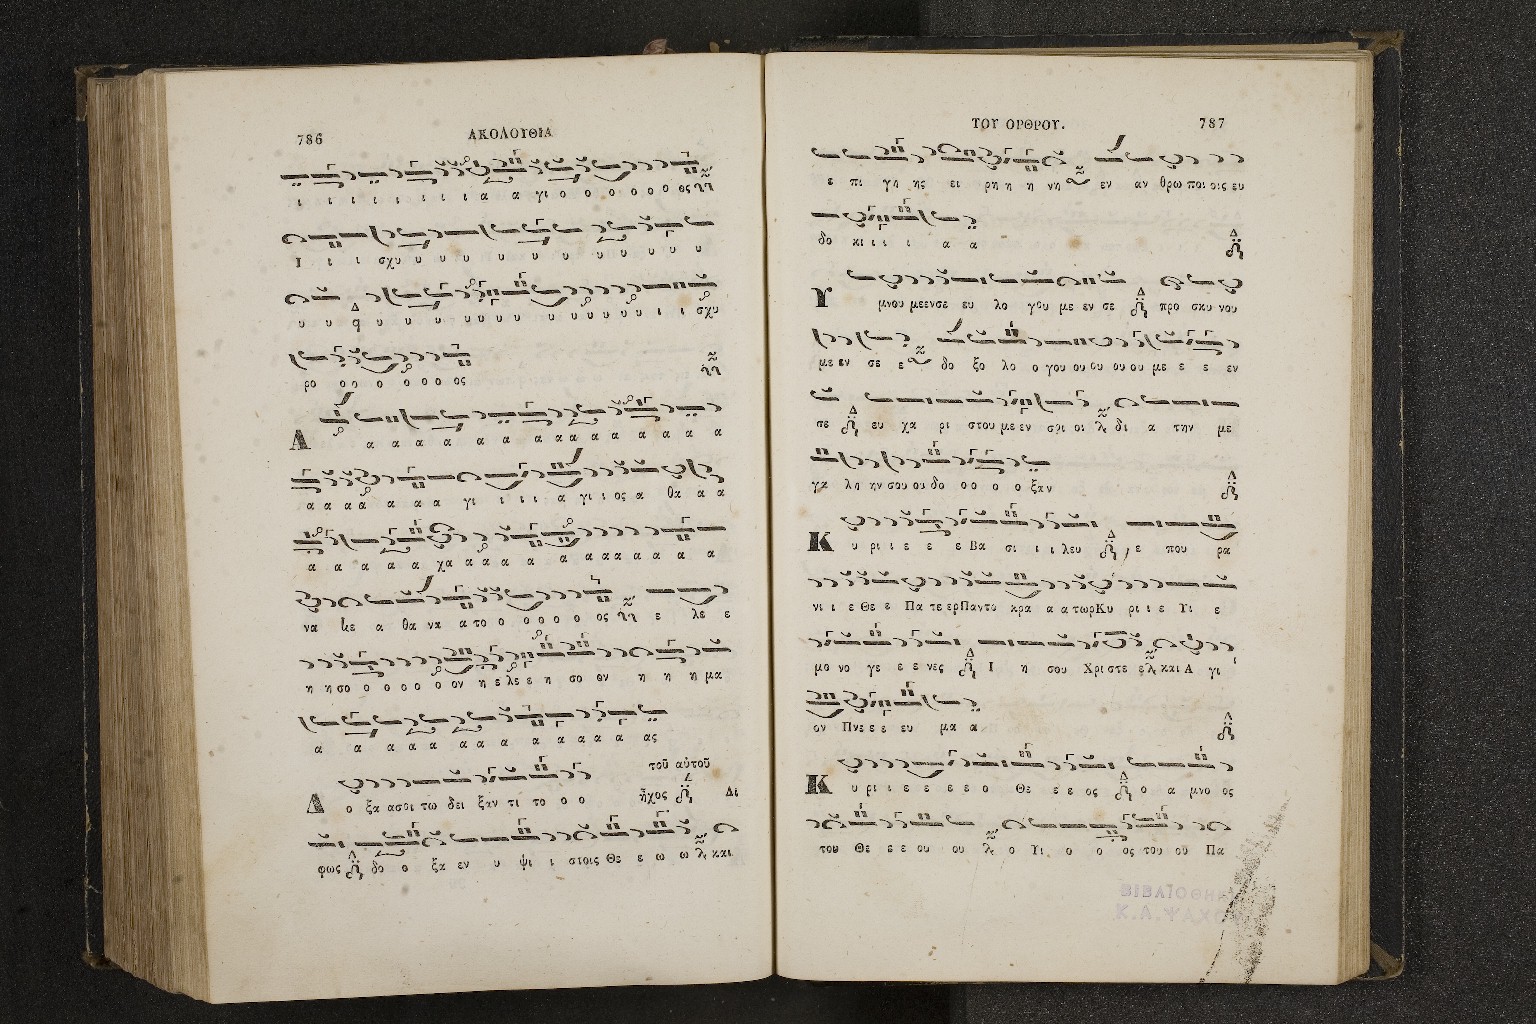 786
ΑΚΟΛΟΥΘΙΑ
ι ι ι ι ι ι ι ι α α γι ο ο ο ο ο ο ο ος
Ι ι ι σχυ υ υ υ υ υ υ υ υ υ υ υ
υ υ υ υ υ υ υ υ υ υ υ υ υ υ ι ι σχυ
ρο ο ο ο ο ο ο ο ος
Α α α α α α α α α α α α α α α α
α α α α α α α γι ι ι ι α γι ι ος α θα α α
α α α α α χα α α α α α α α α α α α α
να κε α θα να α το ο ο ο ο ο ο ος ε λε ε
η η σο ο ο ο ο ο ον η ε λε ε η σο ον η η η μα
α α α α α α α α α α α α α ας
τοῦ αὐτοῦ
Δ ο ξα α σοι τω δει ξαν τι το ο ο ἦχος Δι
φως δο ο ξα εν υ ψι ι στοις Θε ε ω ω και
ΤΟΥ ΟΡΘΡΟΥ.
787
ε πι γη ης ει ρη η η νη εν αν θρω ποι οις ευ
δο κι ι ι ι α α
Υ μνου με εν σε ευ λο γου με εν σε προ σκυ νου
με εν σε ε δο ξο λο ο γου ου ου ου ου με ε ε εν
σε ευ χα ρι στου με εν σοι οι δι α την με
γα λη ην σου ου δο ο ο ο ο ξαν
Κ υ ρι ι ε ε ε ε Βα σι ι ι λευ ε που ρα
νι ι ε Θε ε Πα τε ερ Παντο κρα α α τωρ Κυ ρι ι ε Υι ε
μο νο γε ε ε νες Ι η σου Χρι στε ε και Α γι
ον Πνε ε ε ευ μα α
Κ υ ρι ι ε ε ε ε ε ο Θε ε ε ος ο α μνο ος
του Θε ε ε ου ου ο Υι ο ο ος του ου Πα